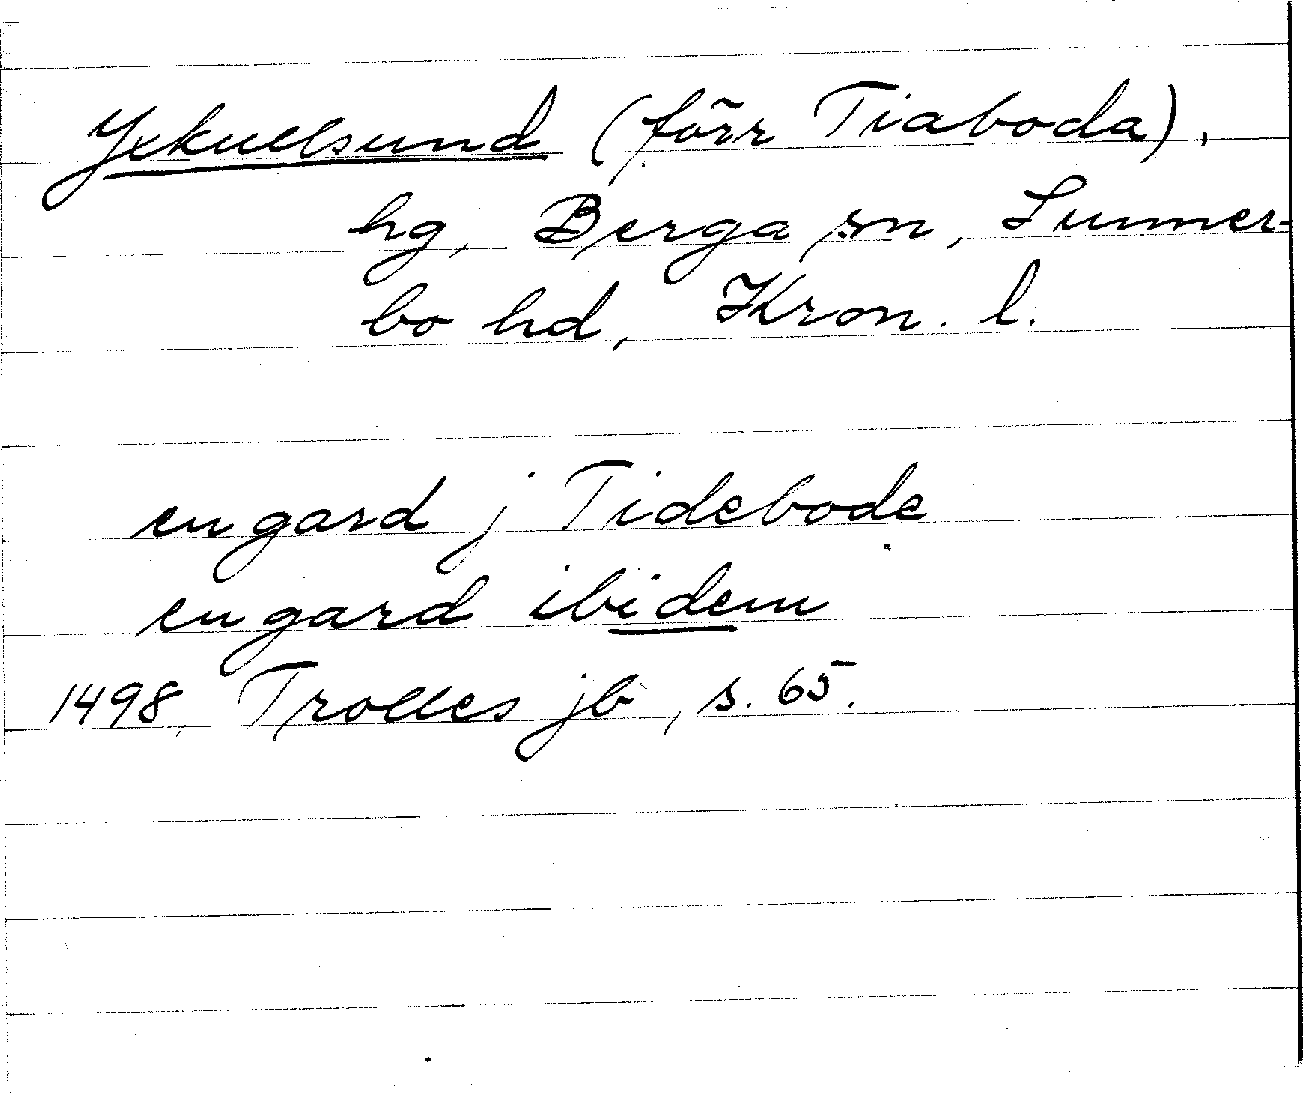 Yxkullsund (förr Tiaboda),
hg, Berga sn, Sunner-
bo hd, Kron. l.
en gard j Tidebode
en gard ibidem
1498, Trolles jb, s. 65.